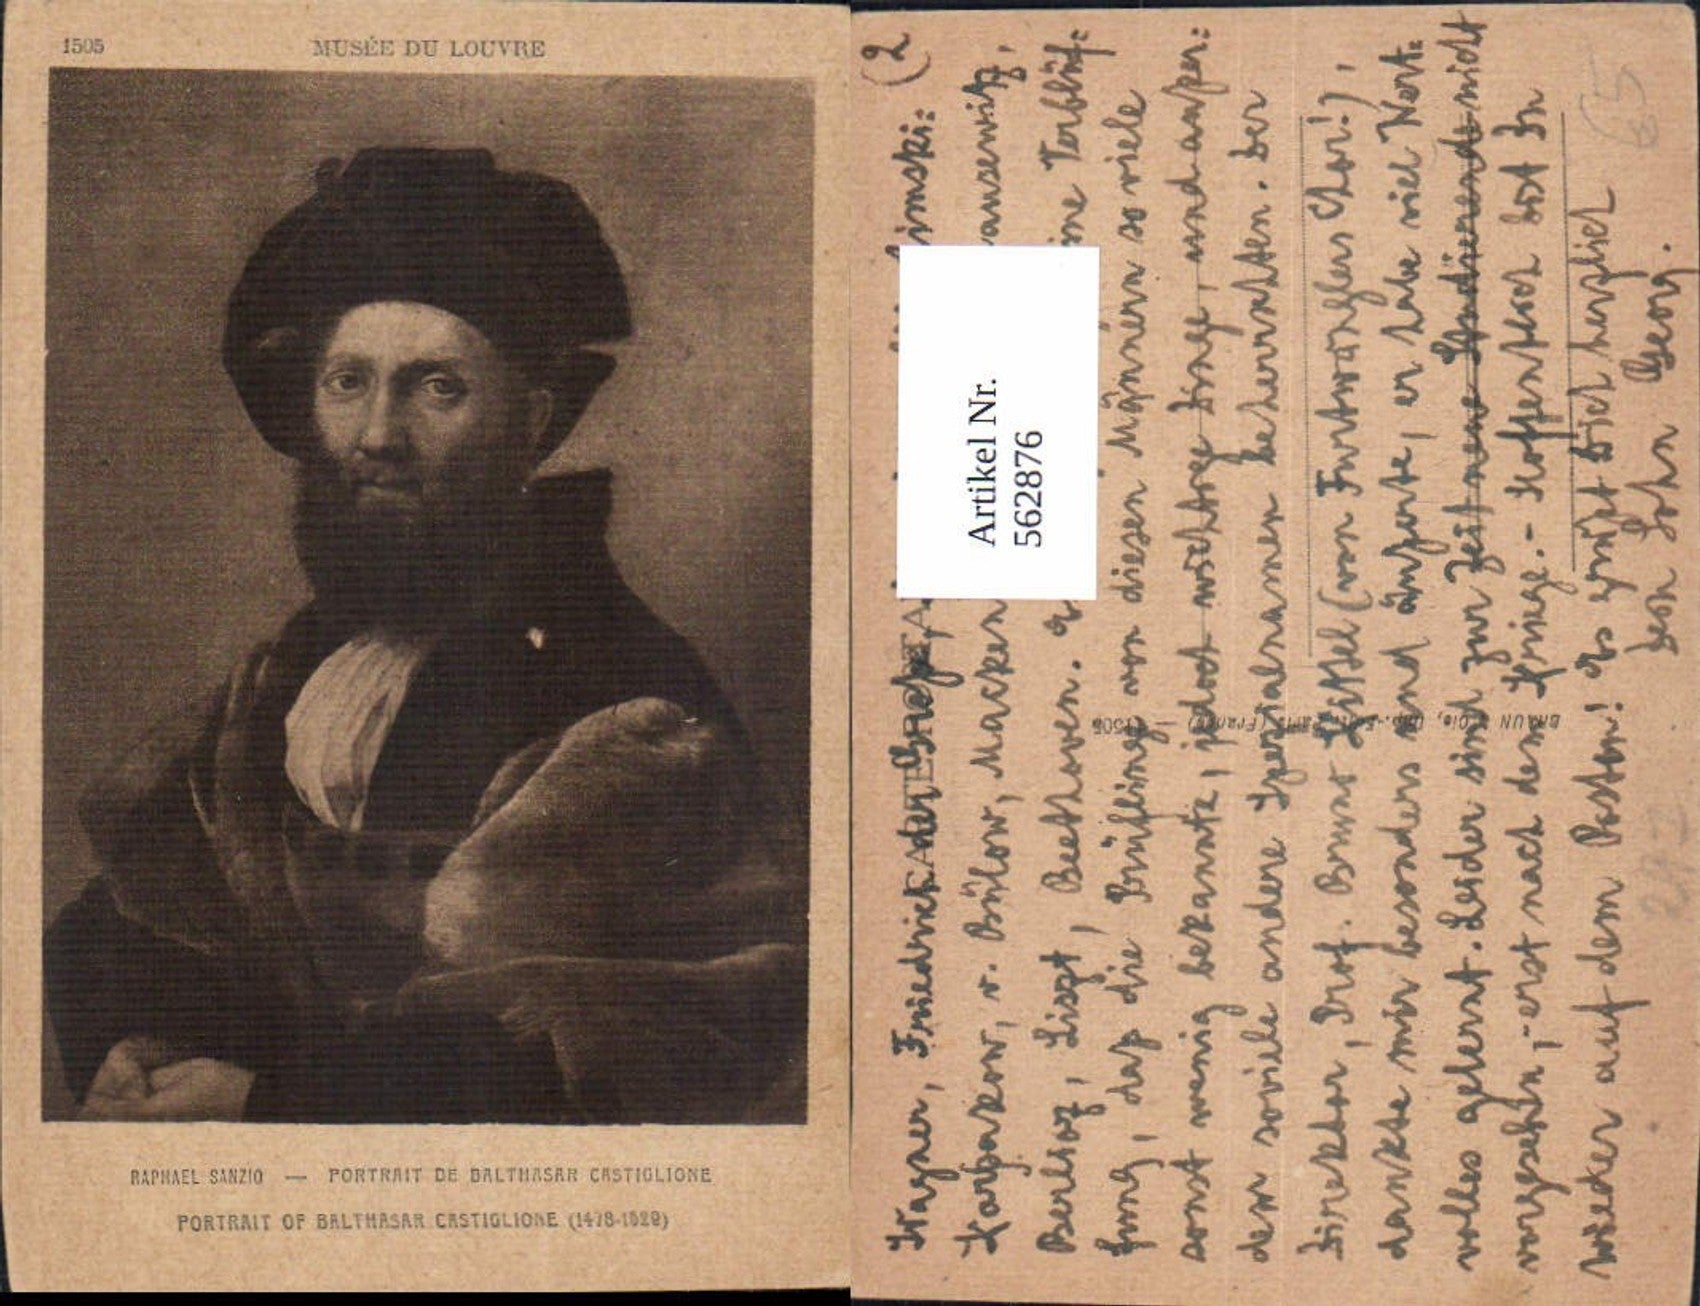 1505 MUSÉE DU LOUVRE
RAPHAEL SANZIO — PORTRAIT DE BALTHASAR CASTIGLIONE
PORTRAIT OF BALTHASAR CASTIGLIONE (1478-1529)
(2
Wagner, Friedrich der Große, limski:
Korßakow, v. Bülow, Macken ansewitz,
Berlioz, Liszt, Beethoven. ine Verblüf:
fung, daß die Prüflinge von diesen Männern so viele
sonst wenig bekannte, jedoch wichtige Dinge, und außer:
dem soviele andere Spezialnamen herrschten. Der
Direktor, Prof. Bruno Kittel (vom Furtwängler Chor!),
dankte mir besonders und äußerte, er habe viel Wert:
volles gelernt. Leider sind zur Zeit neue Studierende nicht
vorgesehn, - erst nach dem Kriege. - Hoffentlich bist Du
wieder auf dem Posten! Es grüßt Dich herzlich
Dein Sohn Georg.
Artikel Nr.
562876
BRAUN & Cie, Paris (France) 1505
65